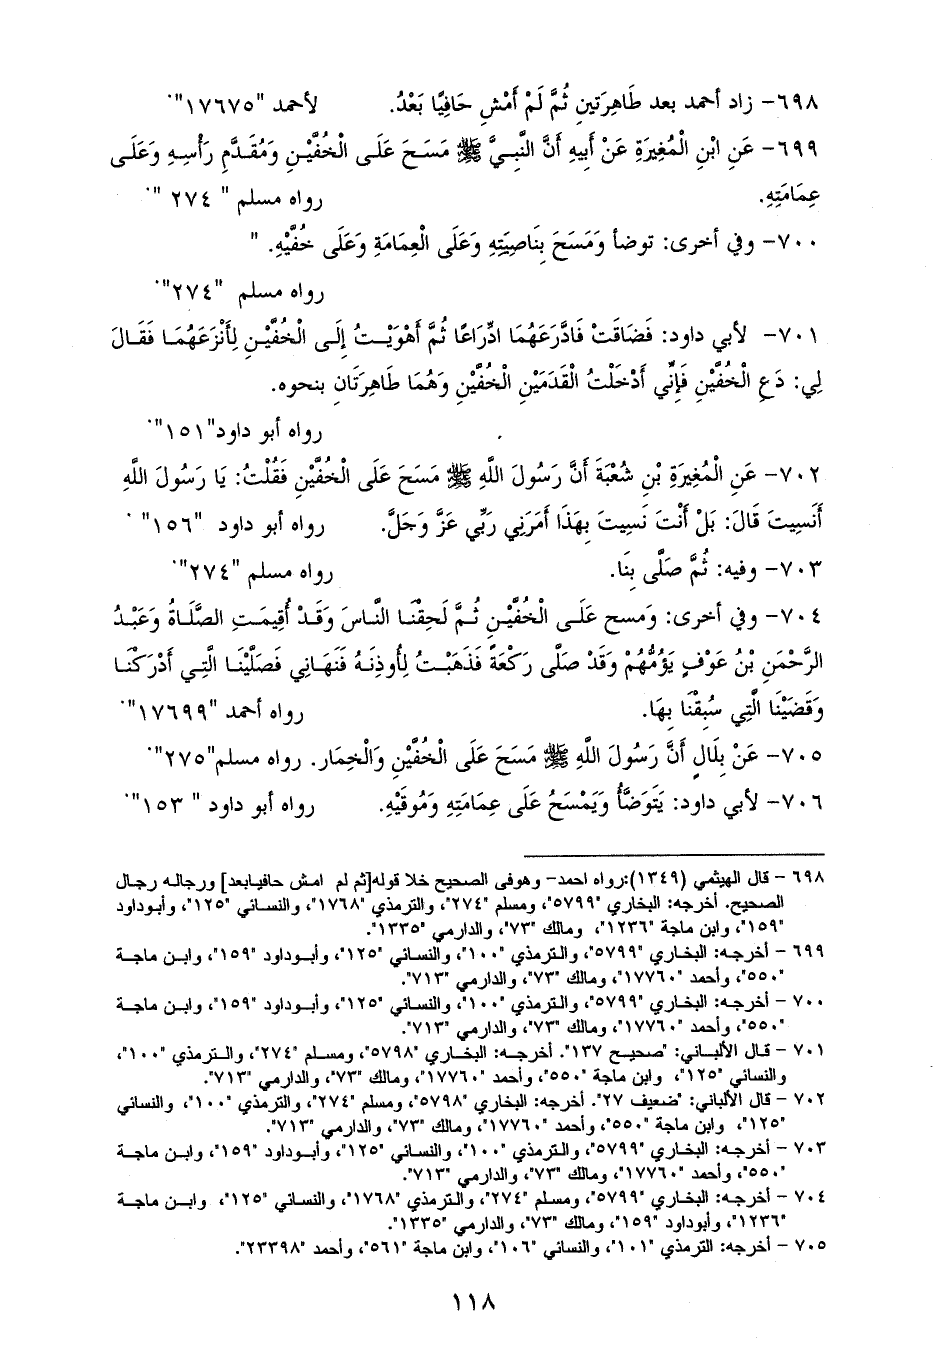 ٦٩٨- زاد أحمد بعد طَاهِرَتينِ ثُمَّ لَمْ أَمْشِ حَافِيًا بَعْدُ. لأحمد "١٧٦٧٥".
٦٩٩- عَنِ ابْنِ الْمُغِيرَةِ عَنْ أَبِيهِ أَنَّ النَّبِيَّ ﷺ مَسَحَ عَلَى الْخُفَّيْنِ وَمُقَدَّمِ رَأْسِهِ وَعَلَى
عِمَامَتِهِ. رواه مسلم " ٢٧٤ ".
٧٠٠- وفي أخرى: توضأ وَمَسَحَ بِنَاصِيَتِهِ وَعَلَى الْعِمَامَةِ وَعَلَى خُفَّيْهِ. "
رواه مسلم "٢٧٤".
٧٠١- لأبي داود: فَضَاقَتْ فَادَّرَعَهُمَا ادِّرَاعًا ثُمَّ أَهْوَيْتُ إِلَى الْخُفَّيْنِ لِأَنْزَعَهُمَا فَقَالَ
لِي: دَعِ الْخُفَّيْنِ فَإِنِّي أَدْخَلْتُ الْقَدَمَيْنِ الْخُفَّيْنِ وَهُمَا طَاهِرَتَانِ بنحوه.
رواه أبو داود"١٥١".
٧٠٢- عَنِ الْمُغِيرَةِ بْنِ شُعْبَةَ أَنَّ رَسُولَ اللَّهِ ﷺ مَسَحَ عَلَى الْخُفَّيْنِ فَقُلْتُ: يَا رَسُولَ اللَّهِ
أَنَسِيتَ قَالَ: بَلْ أَنْتَ نَسِيتَ بِهَذَا أَمَرَنِي رَبِّي عَزَّ وَجَلَّ. رواه أبو داود "١٥٦" .
٧٠٣- وفيه: ثُمَّ صَلَّى بِنَا. رواه مسلم "٢٧٤".
٧٠٤- وفي أخرى: وَمسح عَلَى الْخُفَّيْنِ ثُمَّ لَحِقْنَا النَّاسَ وَقَدْ أُقِيمَتِ الصَّلَاةُ وَعَبْدُ
الرَّحْمَنِ بْنُ عَوْفٍ يَؤُمُّهُمْ وَقَدْ صَلَّى رَكْعَةً فَذَهَبْتُ لِأُوذِنَهُ فَنَهَانِي فَصَلَّيْنَا الَّتِي أَدْرَكْنَا
وَقَضَيْنَا الَّتِي سُبِقْنَا بِهَا. رواه أحمد "١٧٦٩٩".
٧٠٥- عَنْ بِلَالٍ أَنَّ رَسُولَ اللَّهِ ﷺ مَسَحَ عَلَى الْخُفَّيْنِ وَالْخِمَارِ. رواه مسلم"٢٧٥".
٧٠٦- لأبي داود: يَتَوَضَّأُ وَيَمْسَحُ عَلَى عِمَامَتِهِ وَمُوقَيْهِ. رواه أبو داود " ١٥٣".
٦٩٨ - قال الهيثمي (١٣٤٩):رواه احمد- وهوفى الصحيح خلا قوله[ثم لم امش حافيابعد] ورجاله رجال
الصحيح. أخرجه: البخاري "٥٧٩٩"، ومسلم "٢٧٤"، والترمذي "١٧٦٨"، والنسائي "١٢٥"، وأبوداود
"١٥٩"، وابن ماجة "١٢٣٦"، ومالك "٧٣"، والدارمي "١٣٣٥".
٦٩٩ - أخرجه: البخاري "٥٧٩٩"، والترمذي "١٠٠"، والنسائي "١٢٥"، وأبوداود "١٥٩"، وابن ماجة
"٥٥٠"، وأحمد "١٧٧٦٠"، ومالك "٧٣"، والدارمي "٧١٣".
٧٠٠ - أخرجه: البخاري "٥٧٩٩"، والترمذي "١٠٠"، والنسائي "١٢٥"، وأبوداود "١٥٩"، وابن ماجة
"٥٥٠"، وأحمد "١٧٧٦٠"، ومالك "٧٣"، والدارمي "٧١٣".
٧٠١ - قال الألباني: "صحيح ١٣٧". أخرجه: البخاري "٥٧٩٨"، ومسلم "٢٧٤"، والترمذي "١٠٠"،
والنسائي "١٢٥"، وابن ماجة "٥٥٠"، وأحمد "١٧٧٦٠"، ومالك "٧٣"، والدارمي "٧١٣".
٧٠٢ - قال الألباني: "ضعيف ٢٧". أخرجه: البخاري "٥٧٩٨"، ومسلم "٢٧٤"، والترمذي "١٠٠"، والنسائي
"١٢٥"، وابن ماجة "٥٥٠"، وأحمد "١٧٧٦٠"، ومالك "٧٣"، والدارمي "٧١٣".
٧٠٣ - أخرجه: البخاري "٥٧٩٩"، والترمذي "١٠٠"، والنسائي "١٢٥"، وأبوداود "١٥٩"، وابن ماجة
"٥٥٠"، وأحمد "١٧٧٦٠"، ومالك "٧٣"، والدارمي "٧١٣".
٧٠٤ - أخرجه: البخاري "٥٧٩٩"، ومسلم "٢٧٤"، والترمذي "١٧٦٨"، والنسائي "١٢٥"، وابن ماجة
"١٢٣٦"، وأبوداود "١٥٩"، ومالك "٧٣"، والدارمي "١٣٣٥".
٧٠٥ - أخرجه: الترمذي "١٠١"، والنسائي "١٠٦"، وابن ماجة "٥٦١"، وأحمد "٢٣٣٩٨".
١١٨